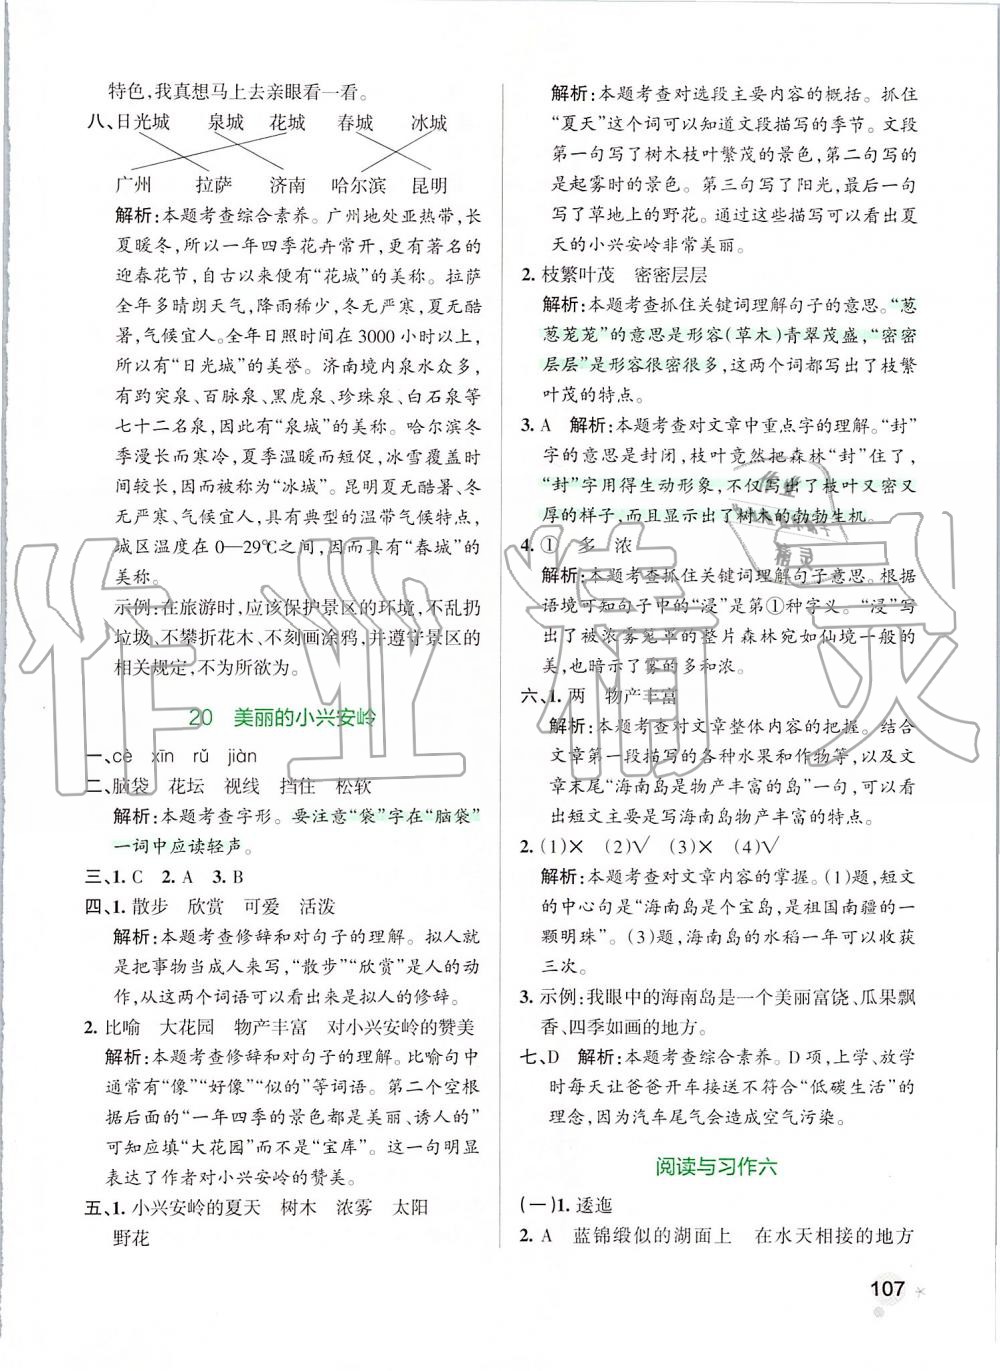 特色,我真想马上去亲眼看一看。
八、日光城 泉城 花城 春城 冰城
广州 拉萨 济南 哈尔滨 昆明
解析:本题考查综合素养。广州地处亚热带,长
夏暖冬,所以一年四季花卉常开,更有著名的
迎春花节,自古以来便有“花城”的美称。拉萨
全年多晴朗天气,降雨稀少,冬无严寒,夏无酷
暑,气候宜人。全年日照时间在3000小时以上,
所以有“日光城”的美誉。济南境内泉水众多,
有趵突泉、百脉泉、黑虎泉、珍珠泉、白石泉等
七十二名泉,因此有“泉城”的美称。哈尔滨冬
季漫长而寒冷,夏季温暖而短促,冰雪覆盖时
间较长,因而被称为“冰城”。昆明夏无酷暑、冬
无严寒、气候宜人,具有典型的温带气候特点,
城区温度在0—29℃之间,因而具有“春城”的
美称。
示例:在旅游时,应该保护景区的环境,不乱扔
垃圾、不攀折花木、不刻画涂鸦,并遵守景区的
相关规定,不为所欲为。
20 美丽的小兴安岭
一、cè xīn rǔ jiàn
二、脑袋 花坛 视线 挡住 松软
解析:本题考查字形。要注意“袋”字在“脑袋”
一词中应读轻声。
三、1. C 2. A 3. B
四、1. 散步 欣赏 可爱 活泼
解析:本题考查修辞和对句子的理解。拟人就
是把事物当成人来写,“散步”“欣赏”是人的动
作,从这两个词语可以看出来是拟人的修辞。
2. 比喻 大花园 物产丰富 对小兴安岭的赞美
解析:本题考查修辞和对句子的理解。比喻句中
通常有“像”“好像”“似的”等词语。第二个空根
据后面的“一年四季的景色都是美丽、诱人的”
可知应填“大花园”而不是“宝库”。这一句明显
表达了作者对小兴安岭的赞美。
五、1. 小兴安岭的夏天 树木 浓雾 太阳
野花
解析:本题考查对选段主要内容的概括。抓住
“夏天”这个词可以知道文段描写的季节。文段
第一句写了树木枝叶繁茂的景色,第二句写的
是起雾时的景色。第三句写了阳光,最后一句
写了草地上的野花。通过这些描写可以看出夏
天的小兴安岭非常美丽。
2. 枝繁叶茂 密密层层
解析:本题考查抓住关键词理解句子的意思。“葱
葱茏茏”的意思是形容(草木)青翠茂盛,“密密
层层”是形容很密很多,这两个词都写出了枝繁
叶茂的特点。
3. A 解析:本题考查对文章中重点字的理解。“封”
字的意思是封闭,枝叶竟然把森林“封”住了,
“封”字用得生动形象,不仅写出了枝叶又密又
厚的样子,而且显示出了树木的勃勃生机。
4. ① 多 浓
解析:本题考查抓住关键词理解句子意思。根据
语境可知句子中的“浸”是第①种字义。“浸”写
出了被浓雾笼罩的整片森林宛如仙境一般的
美,也暗示了雾的多和浓。
六、1. 两 物产丰富
解析:本题考查对文章整体内容的把握。结合
文章第一段描写的各种水果和作物等,以及
文章末尾“海南岛是物产丰富的岛”一句,可以
看出短文主要是写海南岛物产丰富的特点。
2. (1)× (2)√ (3)× (4)√
解析:本题考查对文章内容的掌握。(1)题,短文
的中心句是“海南岛是个宝岛,是祖国南疆的一
颗明珠”。(3)题,海南岛的水稻一年可以收获
三次。
3. 示例:我眼中的海南岛是一个美丽富饶、瓜果飘
香、四季如画的地方。
七、D 解析:本题考查综合素养。D项,上学、放学
时每天让爸爸开车接送不符合“低碳生活”的
理念,因为汽车尾气会造成空气污染。
阅读与习作六
(一)1. 逶迤
2. A 蓝锦缎似的湖面上 在水天相接的地方
107
作业精灵